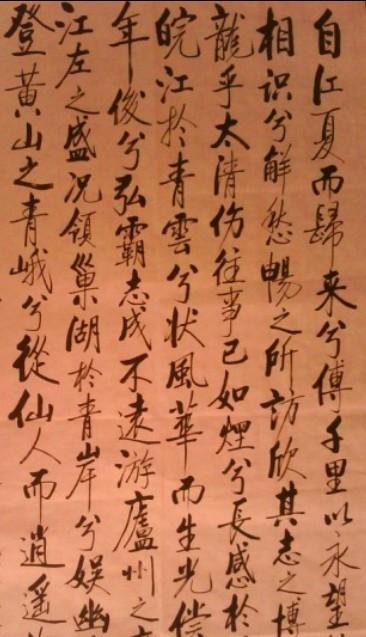 自江夏而歸来兮傅千里以永望
相识兮解愁暢之所訪欣其志之博
龍乎太清伤往事已如煙兮長感於
皖江於青雲兮状風華而生光偿
年俊兮弘霸志成不遠游廬州之
江左之盛况领巢湖於青岸兮娱幽
登黄山之青峨兮從仙人而逍遥